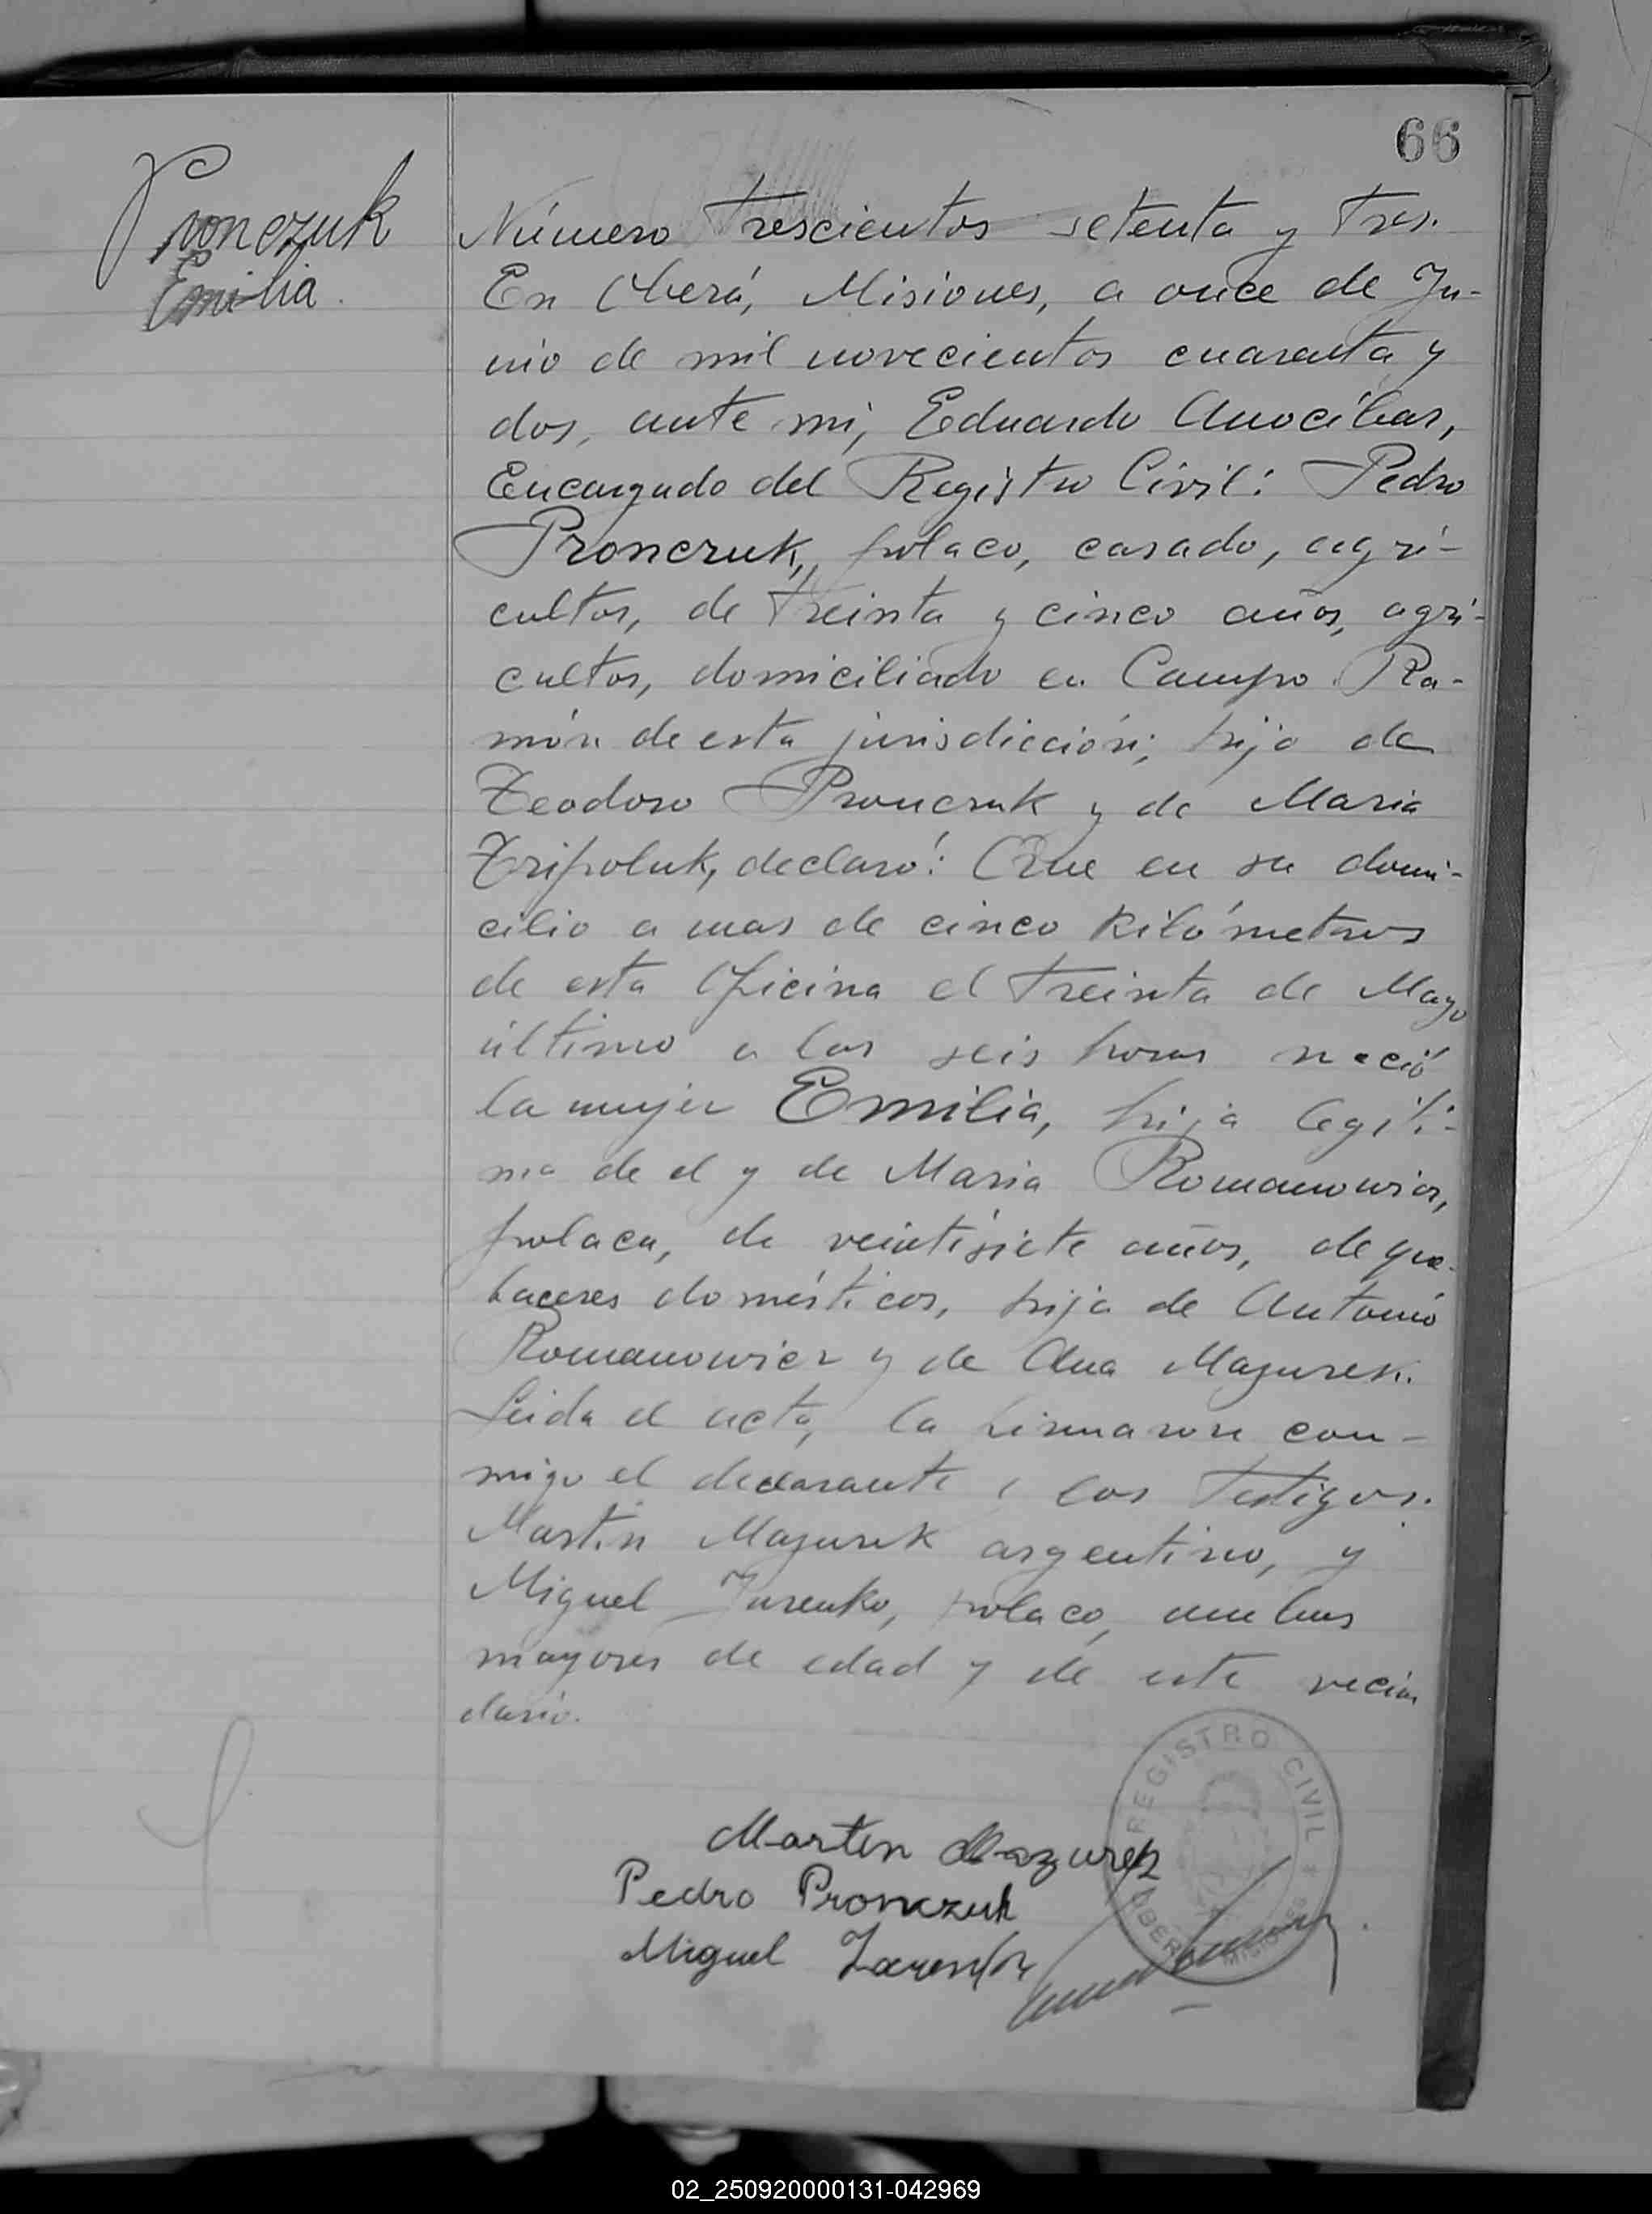 66
Pronczuk
Emilia.
Número trescientos setenta y tres.
En Oberá, Misiones, a once de Ju-
nio de mil novecientos cuarenta y
dos, ante mi, Eduardo Anocibar,
Encargado del Registro Civil: Pedro
Pronczuk, polaco, casado, agri-
cultor, de treinta y cinco años, agri-
cultor, domiciliado en Campo Ra-
món de esta jurisdicción; hijo de
Teodoro Pronczuk y de Maria
Tripoluk, declaró: Que en su domi-
cilio a mas de cinco kilómetros
de esta Oficina el treinta de Mayo
último a las seis horas nació
la mujer Emilia, hija legíti-
ma de el y de Maria Romanowicz,
polaca, de veintisiete años, de que-
haceres domésticos, hija de Antonio
Romanowicz y de Ana Mazurek.
Leida el acta, la firmaron con-
migo el declarante i los testigos.
Martin Mazurek argentino, y
Miguel Jurenko, polaco, ambos
mayores de edad y de este vecin
dario.
REGISTRO CIVIL
OBERÁ MISIONES
Martin Mazurek
Pedro Pronczuk
Miguel
02_250920000131-042969